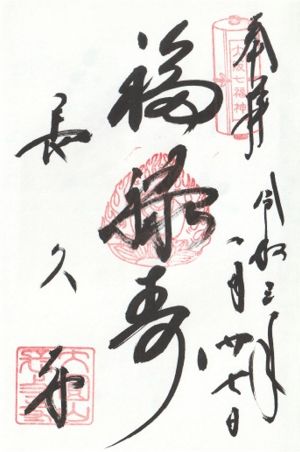 奉拝
大阪七福神
令和三年
一月廿七日
福禄寿
長久寺